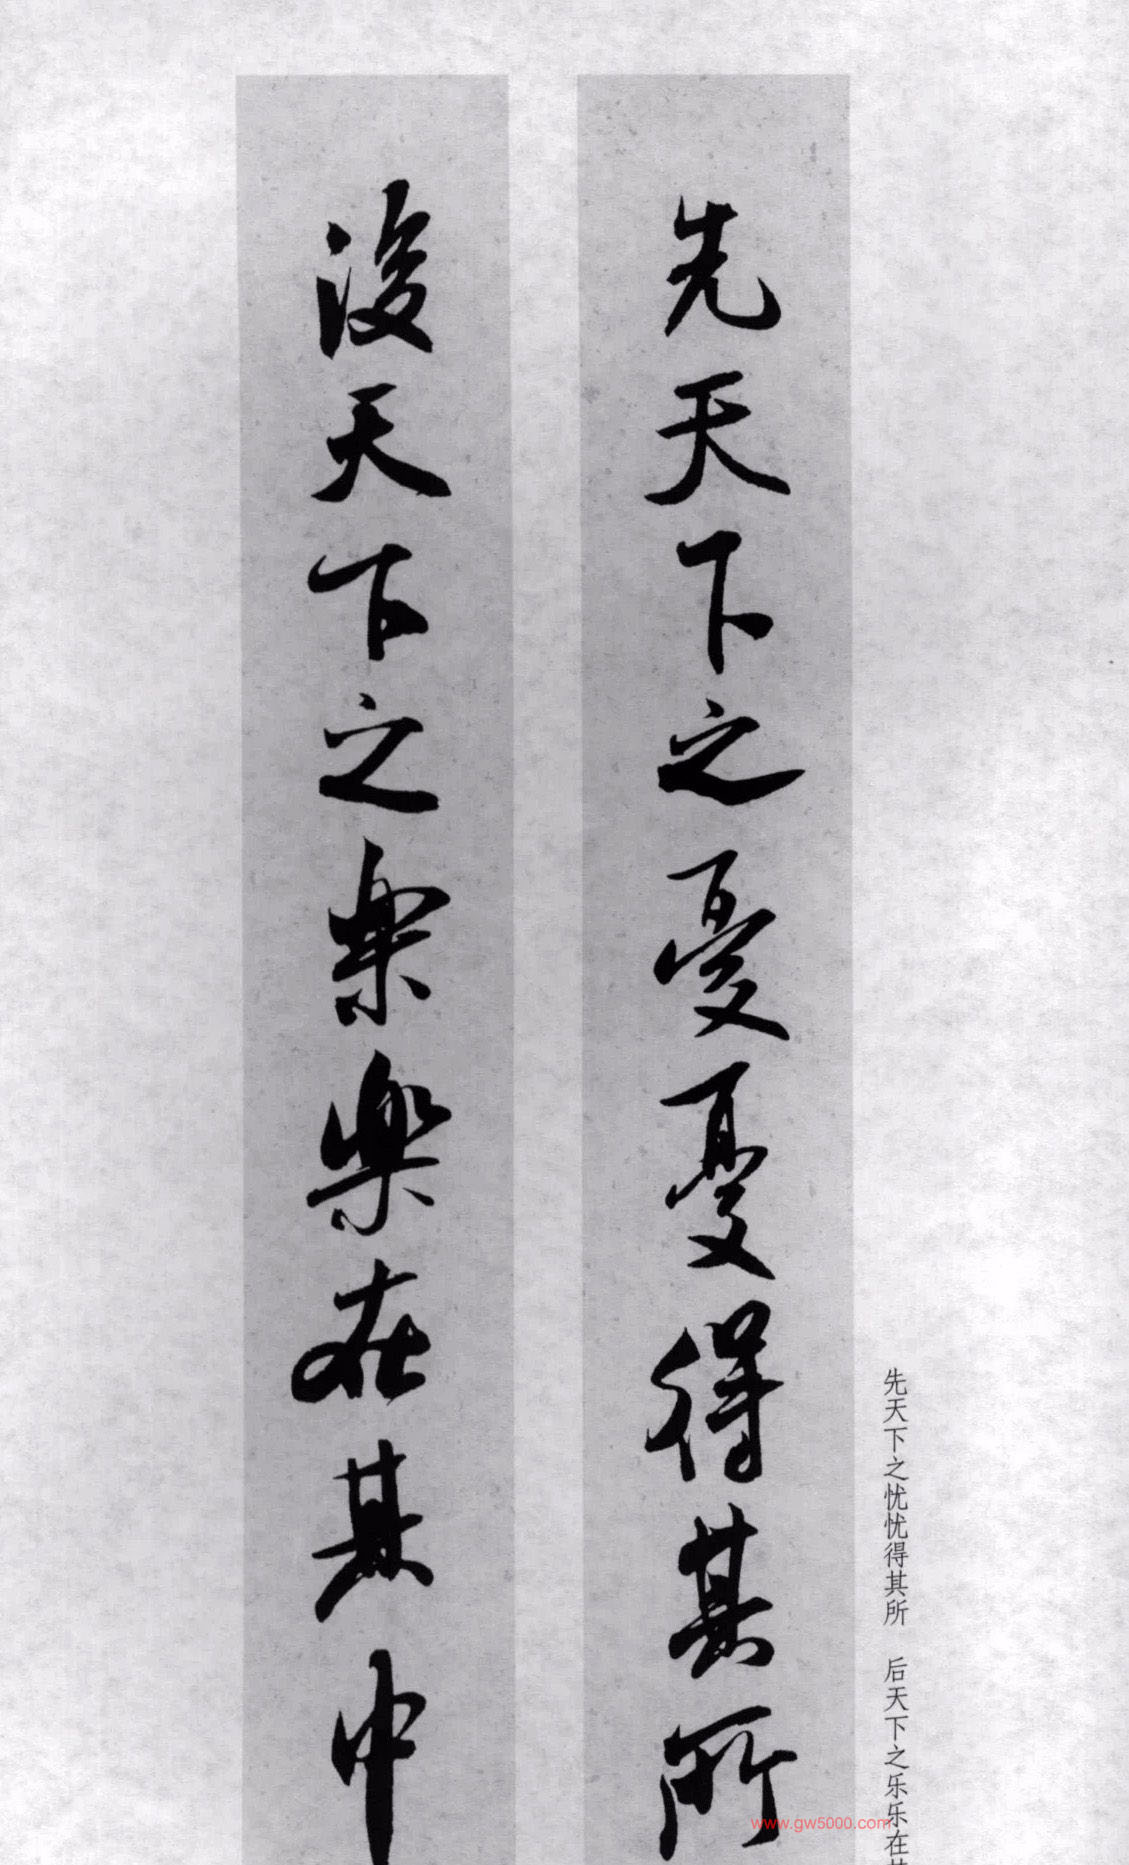 先天下之憂憂得其所
後天下之樂樂在其中
先天下之忧忧得其所　后天下之乐乐在
www.gw5000.com